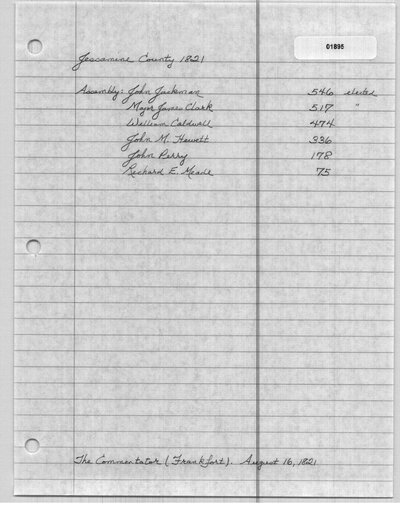 01895
Jessamine County 1821
Assembly: John Jackman 546 elected
Major James Clark 517 "
William Caldwell 474
John M. Hewett 336
John Perry 178
Richard E. Meade 75
The Commentator (Frankfort). August 16, 1821